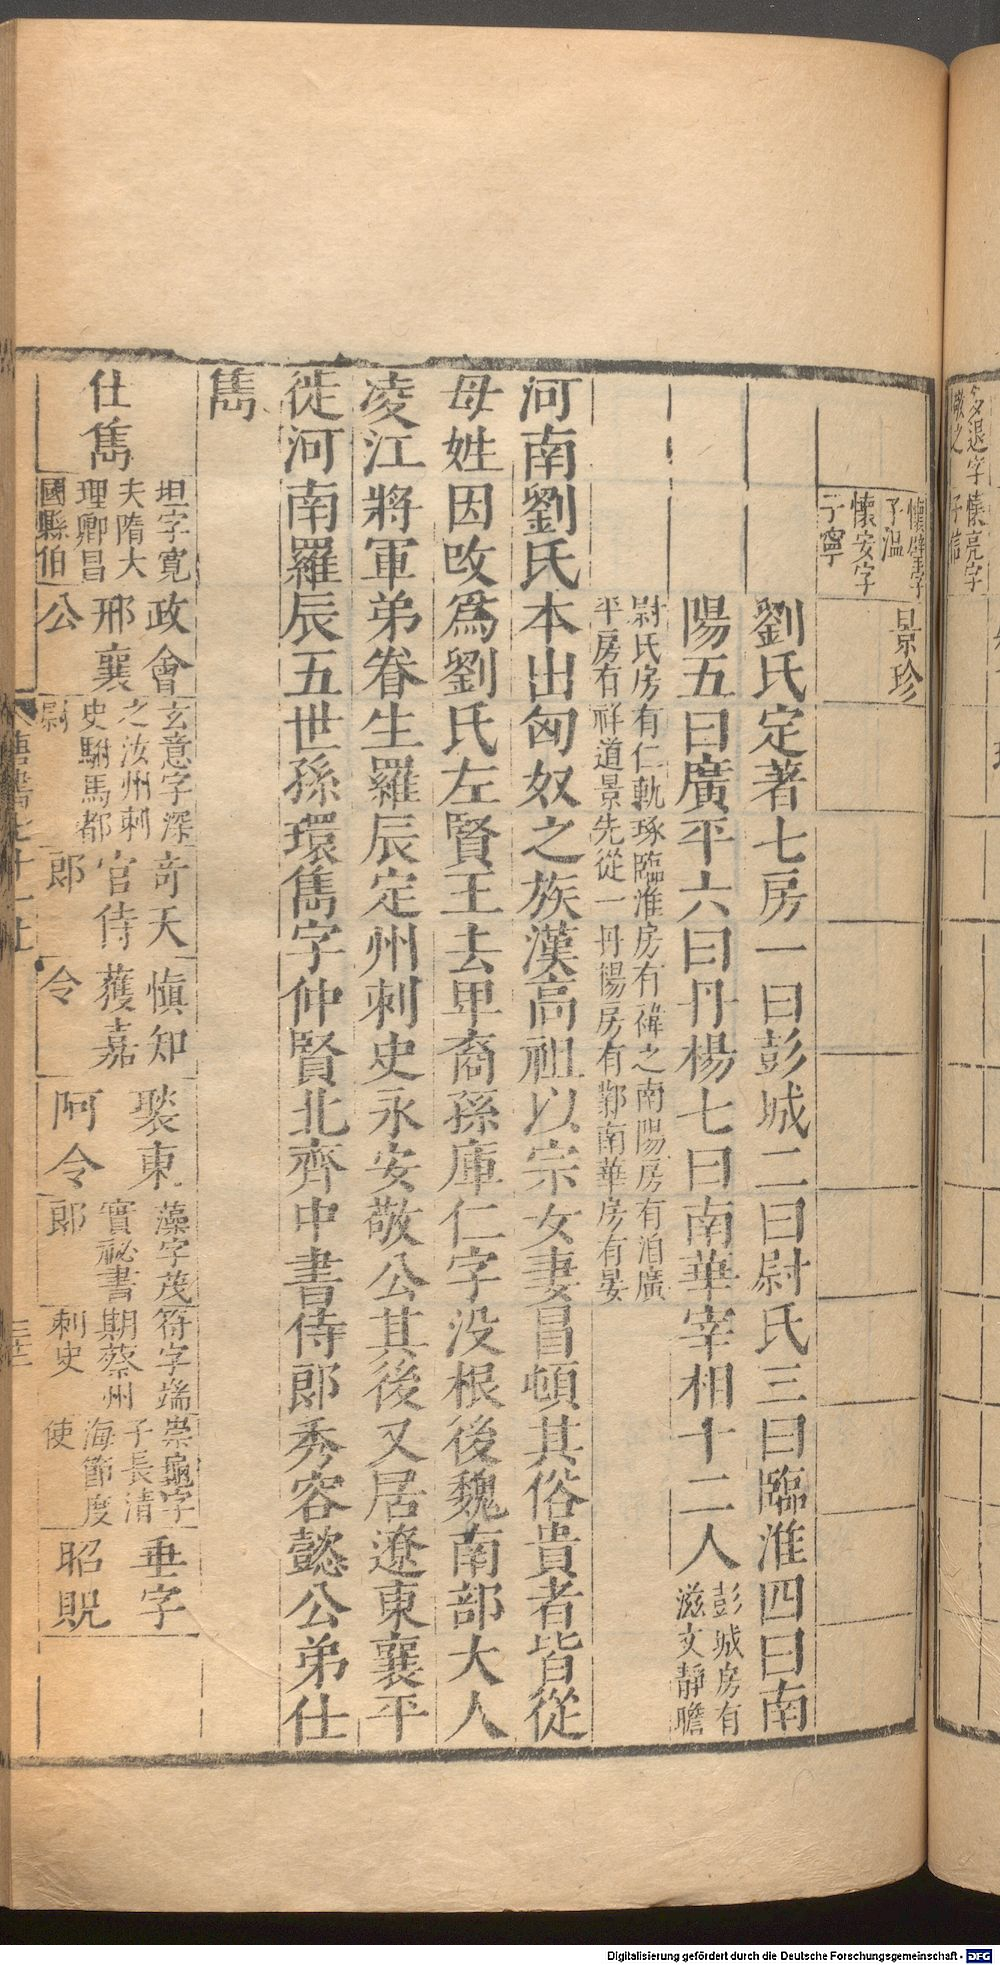 懷璧字
子溫
懷安字
子寧
景珍
劉氏定著七房一曰彭城二曰尉氏三曰臨淮四曰南
陽五曰廣平六曰丹楊七曰南華宰相十二人
彭城房有
滋文靜瞻
尉氏房有仁軌瑑臨淮房有禕之南陽房有洎廣
平房有祥道景先從一丹楊房有鄴南華房有晏
河南劉氏本出匈奴之族漢高祖以宗女妻冒頓其俗貴者皆從
母姓因改爲劉氏左賢王去卑裔孫庫仁字没根後魏南部大人
凌江將軍弟眷生羅辰定州刺史永安敬公其後又居遼東襄平
徙河南羅辰五世孫環雋字仲賢北齊中書侍郎秀容懿公弟仕
雋
仕雋
坦字寬
夫隋大
理卿昌
國縣伯
政會
邢襄
公
玄意字深
之汝州刺
史駙馬都
尉
奇天
官侍
郎
慎知
獲嘉
令
聚東
阿令
藻字茂
實祕書
郎
符字端
期蔡州
刺史
崇龜字
子長清
海節度
使
垂字
昭貺
唐書七十一上
Digitalisierung gefördert durch die Deutsche Forschungsgemeinschaft - DFG